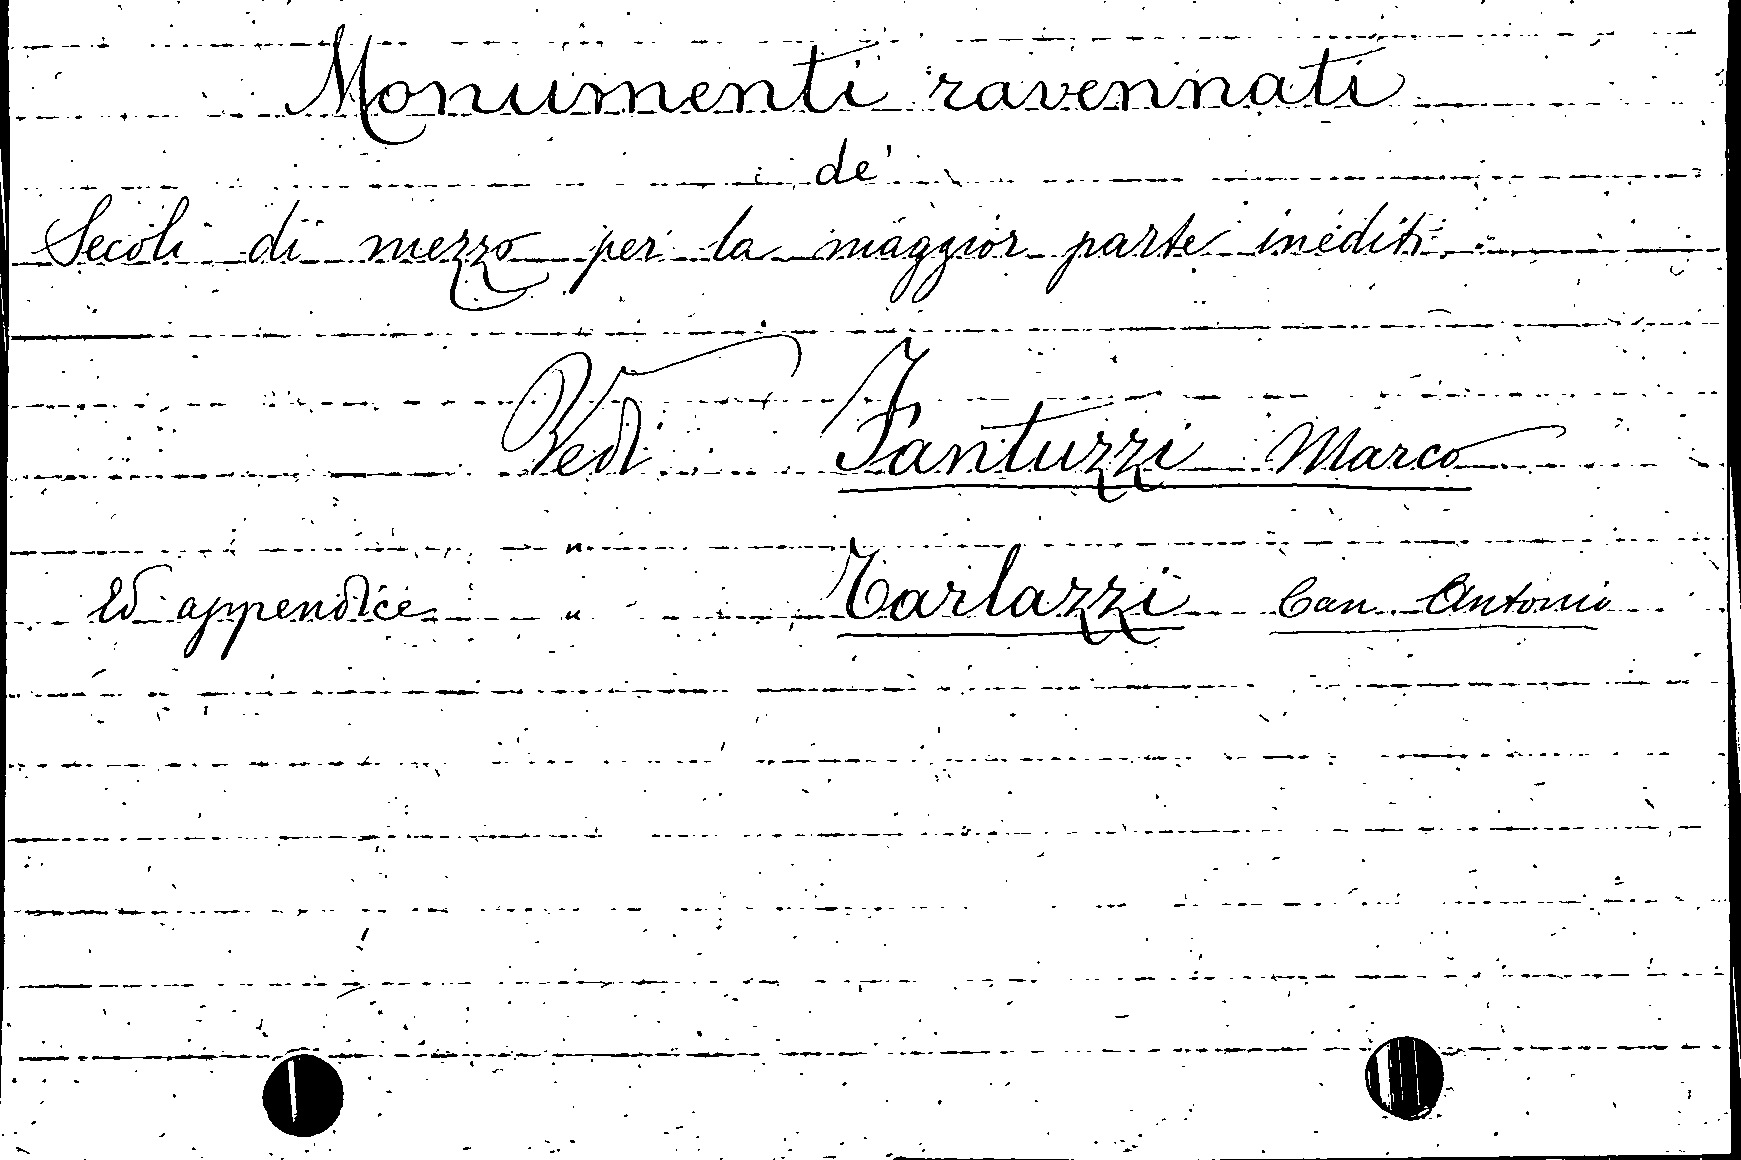 Monumenti ravennati
de'
Secoli di mezzo per la maggior parte inediti
Vedi Fantuzzi Marco
Ed appendice " Tarlazzi Can. Antonio